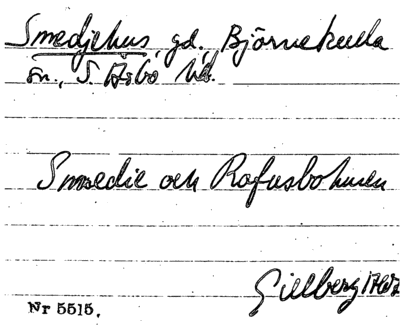 Smedjehus, gd., Björnekulla
sn., S. Åsbo hd.
Smedie och Rafusbohusen
Gillberg 1767
Nr 5515.